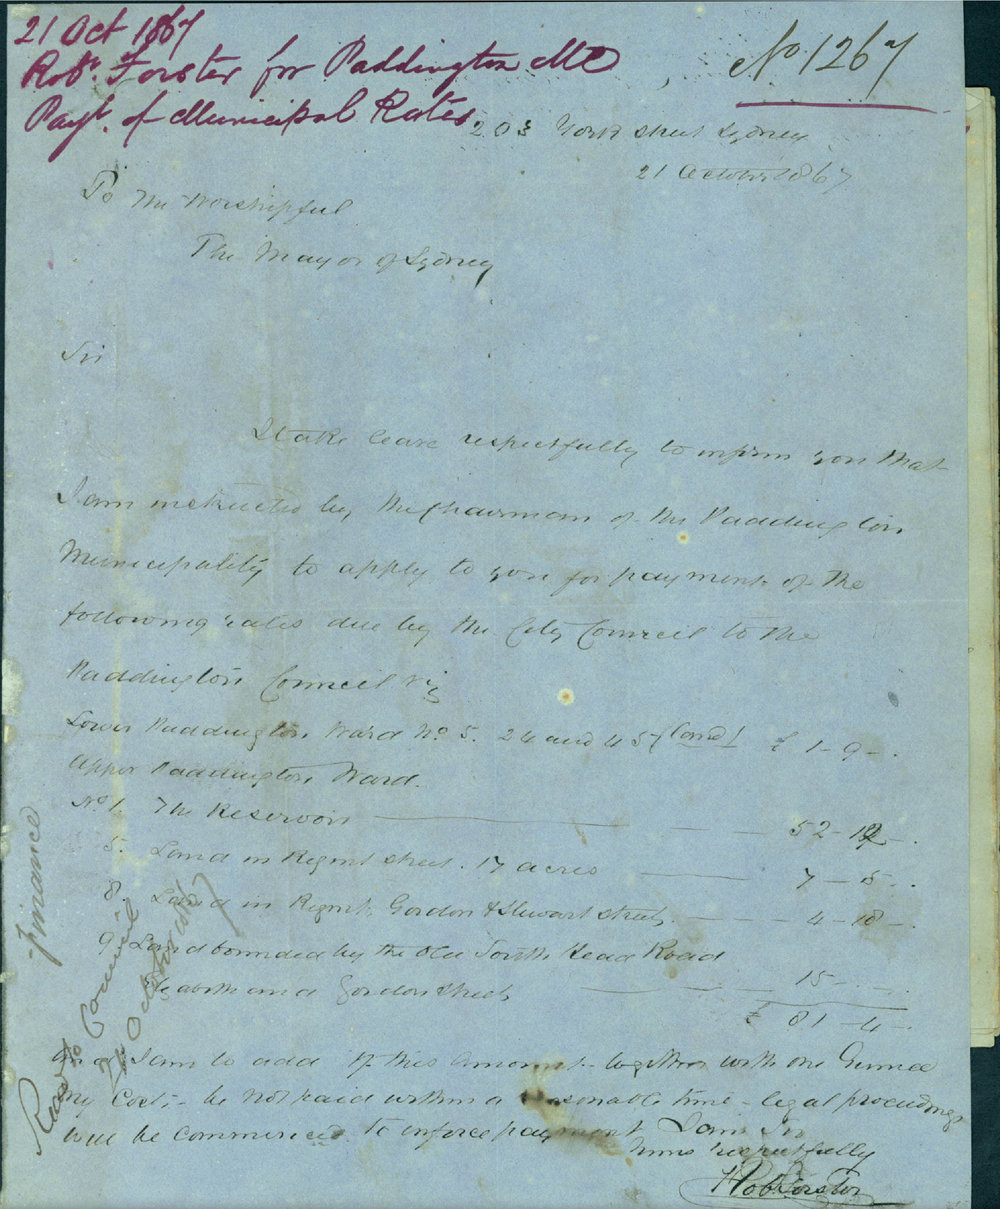 21 Oct 1867
Robt. Forster for Paddington MC
Payt. of Municipal Rates
No 1267
203 York Street Sydney
21 October 1867
To the Worshipful
The Mayor of Sydney
Sir
I take leave respectfully to inform you that
I am instructed by the Chairman of the Paddington
Municipality to apply to you for payment of the
following rates due by the City Council to the
Paddington Council viz
Lower Paddington Ward No 5. 24 and 45 (land) £ 1 - 9 - .
Upper Paddington Ward.
No 1. The Reservoir 52 - 12 - .
5. Land in Regent Street. 17 acres 7 - 5 - .
8. Land in Regent Gordon & Stewart Streets 4 - 18 - .
9 Land bounded by the Old South Head Road
and Gordon Streets 15 - . - .
£ 81 - 4 - .
and I am to add if this amount together with one Guinea
my costs - be not paid within a reasonable time - legal proceedings
will be commenced to enforce payment I am Sir
Yours respectfully
Rob Forster
Finance
Read to Council
October 1867